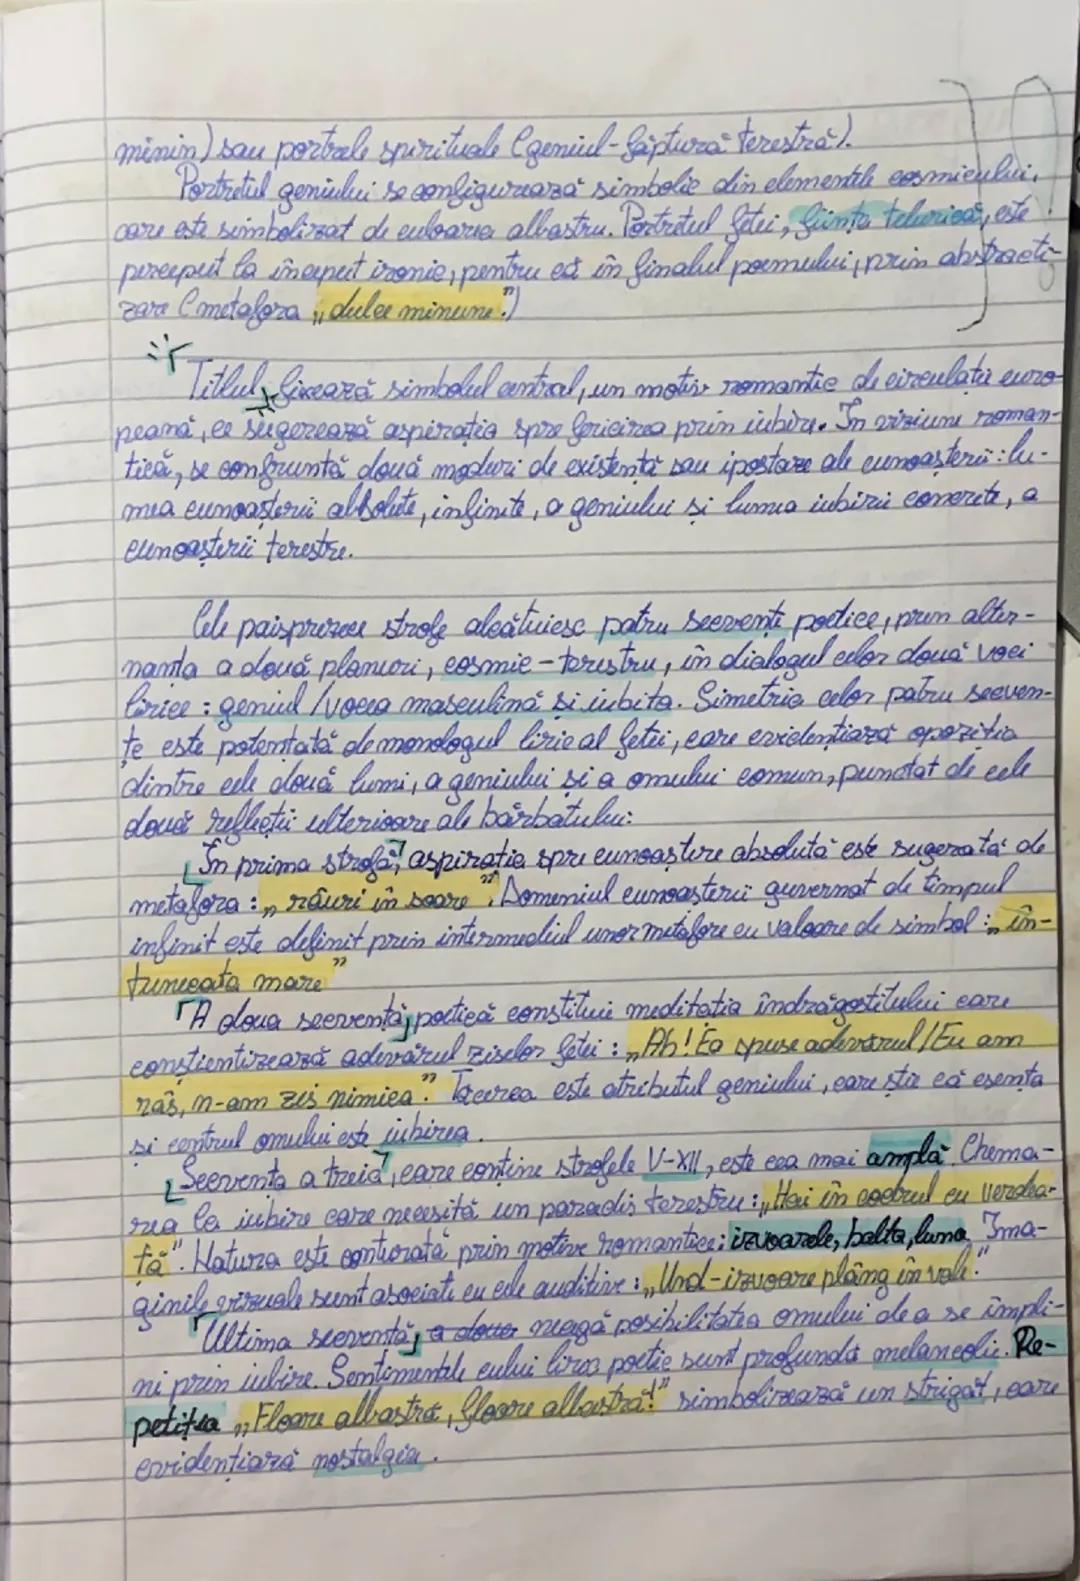 minin) sau portrele spirituale (geniul-făptură terestră).
Portretul geniului se configurează simbolic din elementele cosmicului,
care este simbolizat de culoarea albastru. Portretul fetei, ființa telurică, este
perceput la început ironic, pentru că în finalul poemului, prin abstracti-
zare (metafora „dulce minune".)
Titlul fixează simbolul central, un motiv romantic de circulație euro-
peană, ce sugerează aspirația spre fericirea prin iubire. În viziune roman-
tică, se confruntă două moduri de existență sau ipostaze ale cunoașterii: lu-
mea cunoașterii absolute, infinite, a geniului și lumea iubirii concrete, a
cunoașterii terestre.
Cele paisprezece strofe alcătuiesc patru secvențe poetice, prin alter-
nanța a două planuri, cosmic-terestru, în dialogul celor două voci
lirice: geniul/vocea masculină și iubita. Simetria celor patru secven-
țe este potențată de monologul liric al fetei, care evidențiază opoziția
dintre cele două lumi, a geniului și a omului comun, punctat de cele
două reflecții ulterioare ale bărbatului:
În prima strofă, aspirația spre cunoaștere absolută este sugerată de
metafora: „râuri în soare". Domeniul cunoașterii guvernat de timpul
infinit este definit prin intermediul unor metafore cu valoare de simbol: „în-
tunecata mare"
A doua secvență poetică constituie meditația îndrăgostitului care
conștientizează adevărul ziselor fetei: „Ah! Ea spuse adevărul/Eu am
râs, n-am zis nimica". Tăcerea este atributul geniului, care știe că esența
și centrul omului este iubirea.
Secvența a treia, care conține strofele V-XII, este cea mai amplă. Chema-
rea la iubire care necesită un paradis terestru: „Hai în codrul cu verdea-
ță". Natura este conturată prin motive romantice: izvoarele, balta, luna. Ima-
ginile vizuale sunt asociate cu cele auditive: „Und-izvoare plâng în vale."
Ultima secvență, a doua neagă posibilitatea omului de a se împli-
ni prin iubire. Sentimentele eului liric poetic sunt profunda melancolie. Re-
petiția „Floare albastră, floare albastră!" simbolizează un strigăt, care
evidențiază nostalgia.